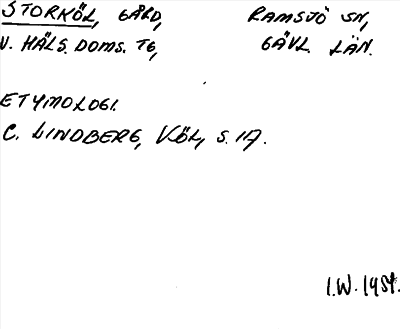 STORKÖL, GÅRD, RAMSJÖ SN,
V. HÄLS. DOMS. TG, GÄVL. LÄN.
ETYMOLOGI.
C. LINDBERG, KÖL, S. 17.
I.W. 1954.